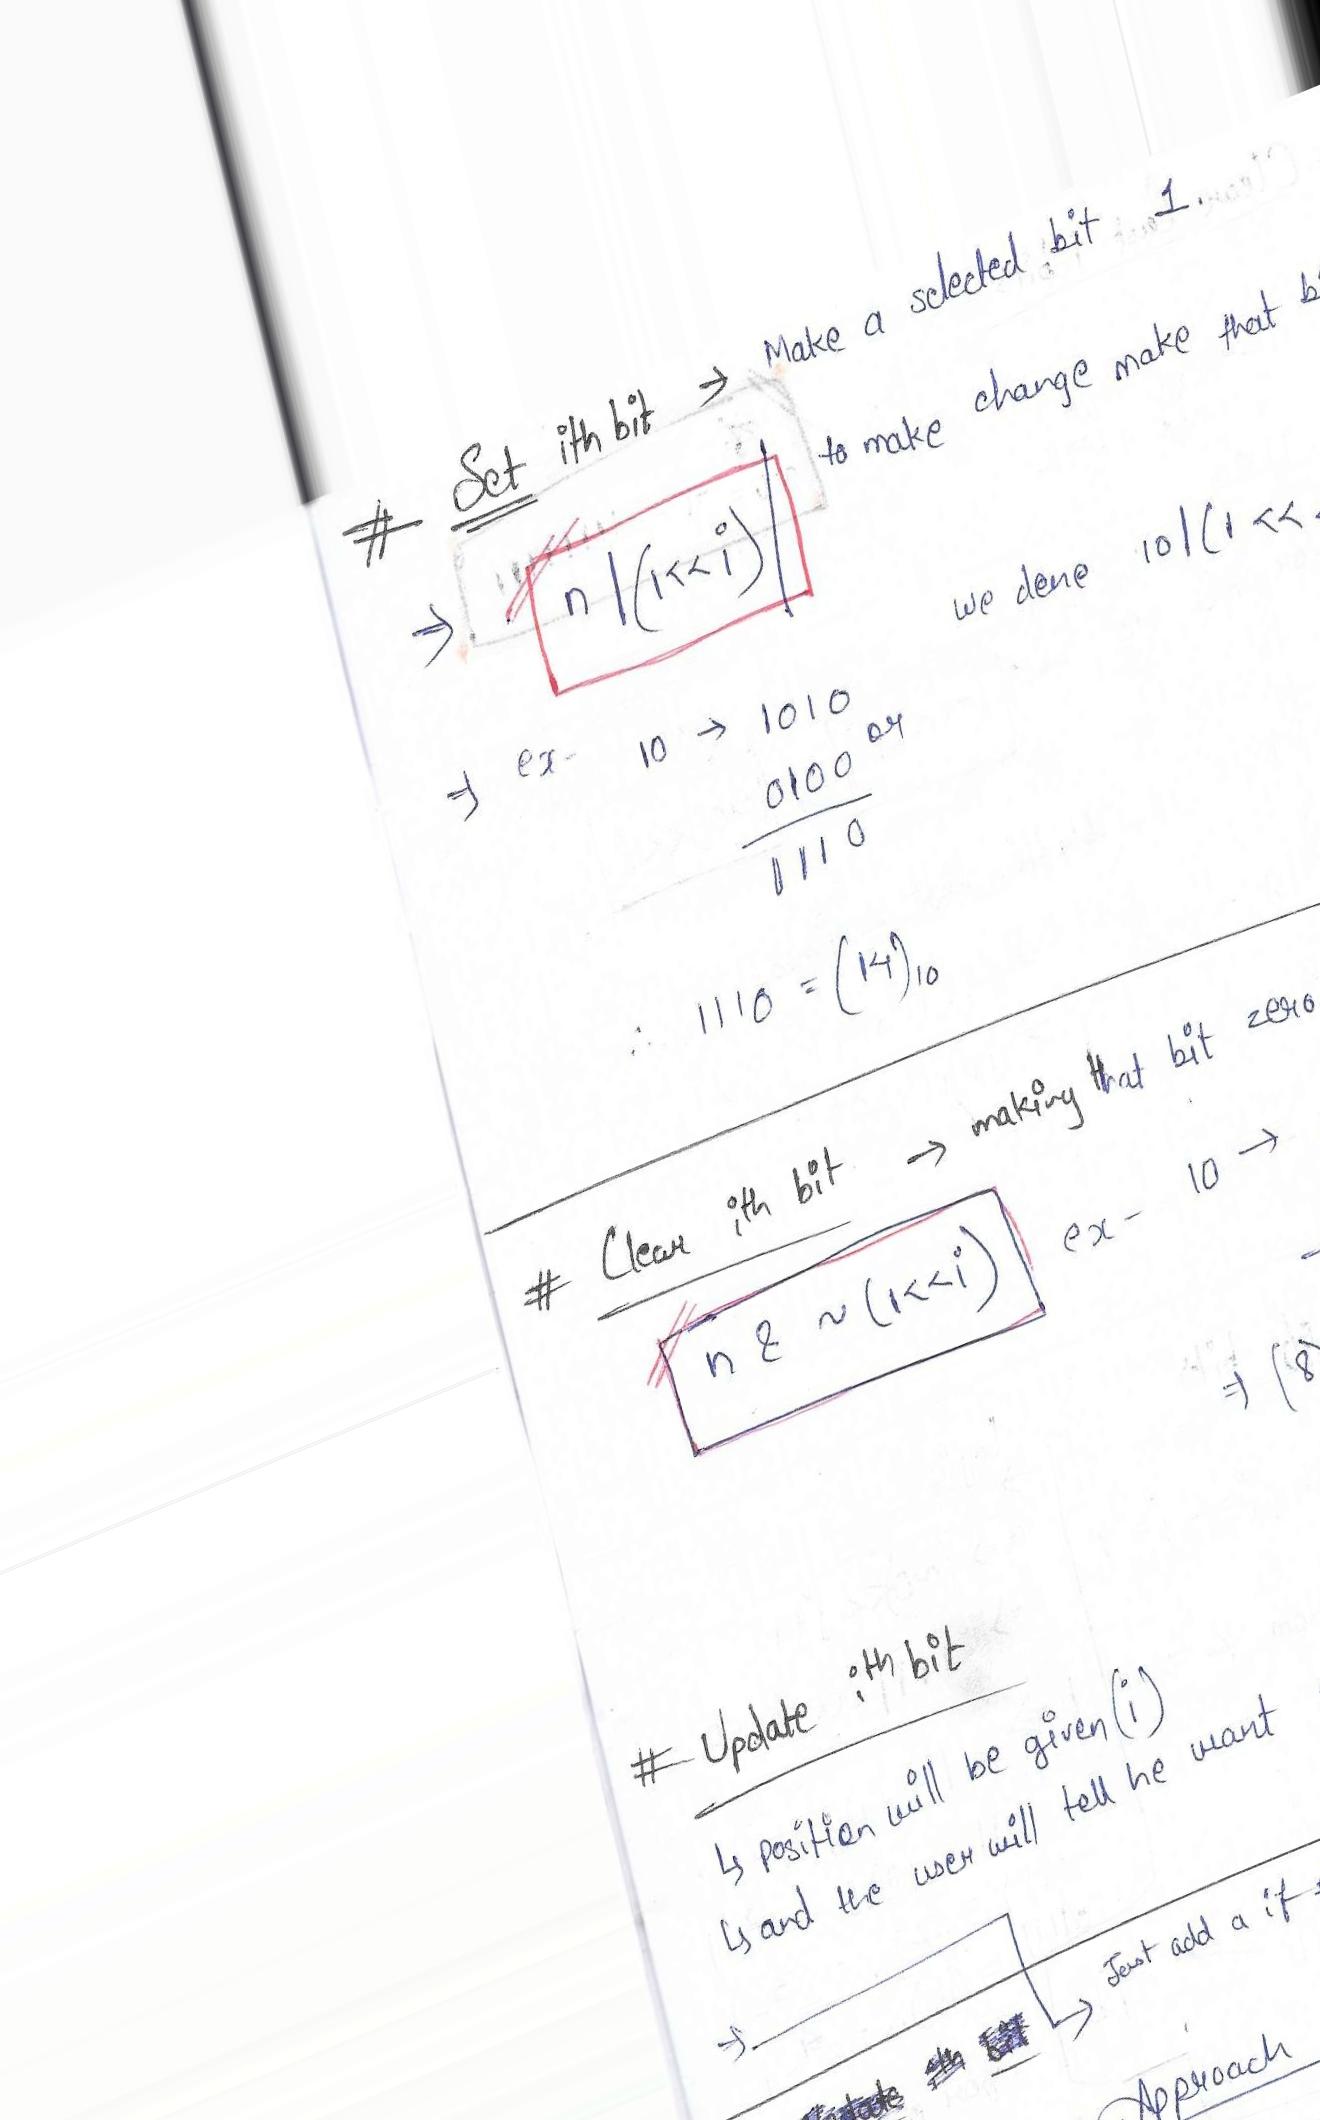 # Set ith bit → Make a selected bit 1.
to make change make that
⇒ n | (1<<i)
we done 10|(1 <<
⇒ ex- 10 → 1010
0100 or
1110
∴ 1110 = (14)10
# Clear ith bit → making that bit zero
n & ~ (1<<i) ex- 10 →
⇒ (8)
# Update ith bit
↳ position will be given (i)
↳ and the user will tell he want
⇒
→ Just add a if
Approach